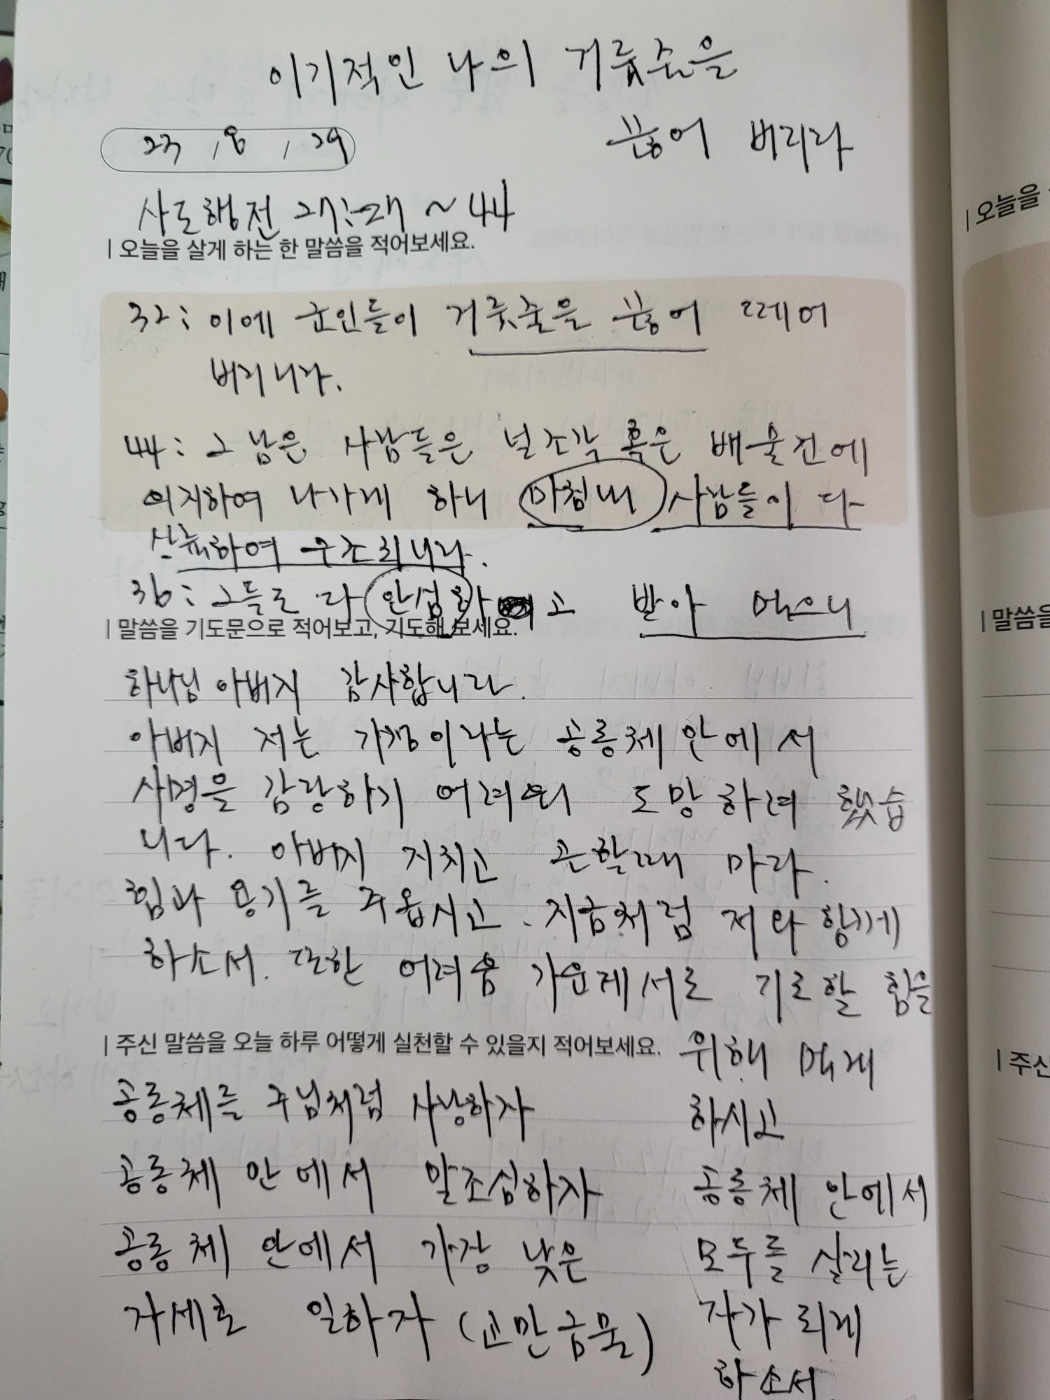 이기적인 나의 거룻줄을
끊어 버리라
23 , 8 , 29
사도행전 27:27 ~ 44
| 오늘을 살게 하는 한 말씀을 적어보세요.
32: 이에 군인들이 거룻줄을 끊어 떼어
버리니라.
44: 그 남은 사람들은 널조각 혹은 배물건에
의지하여 나가게 하니 마침내 사람들이 다
상륙하여 구조되니라.
36: 그들도 다 안심하고 받아 먹으니
| 말씀을 기도문으로 적어보고, 기도해 보세요.
하나님 아버지 감사합니다.
아버지 저는 가정이라는 공동체 안에서
사명을 감당하기 어려워 도망하려 했습
니다. 아버지 지치고 곤할때 마라.
힘과 용기를 주옵시고. 지금처럼 저와 함께
하소서. 또한 어려움 가운데서도 기도할 힘을
위해 먹게
하시고
공동체 안에서
모두를 살리는
자가 되게
하소서
| 주신 말씀을 오늘 하루 어떻게 실천할 수 있을지 적어보세요.
공동체를 주님처럼 사랑하자
공동체 안에서 말조심하자
공동체 안에서 가장 낮은
자세로 일하자 (교만금물)
| 오늘을
| 말씀을
| 주신